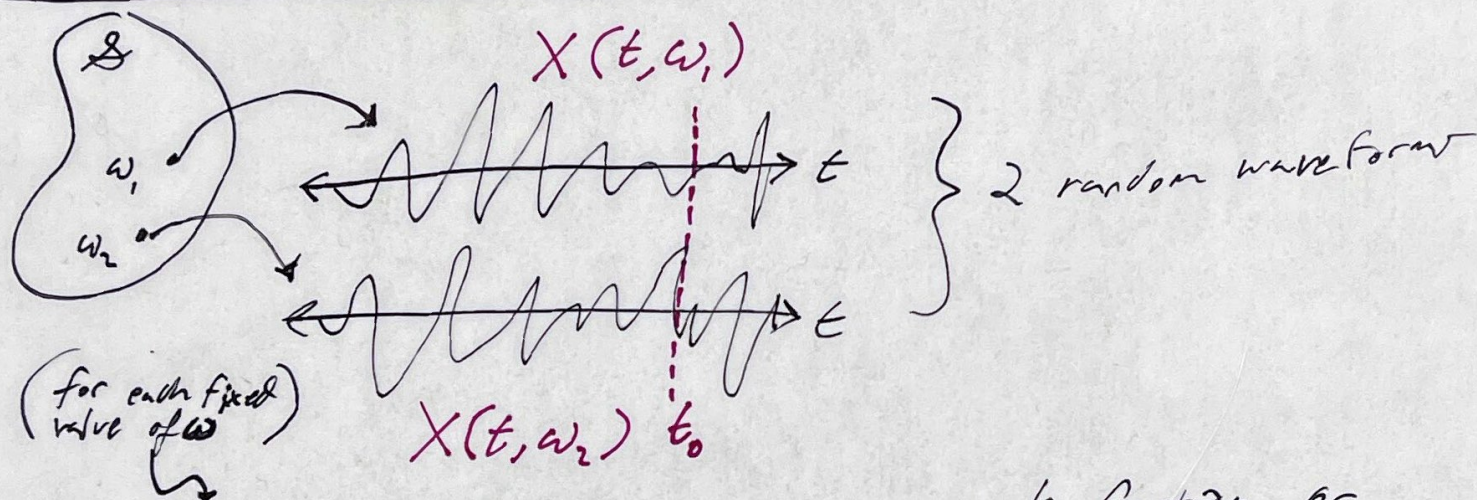 𝒮
X(t,ω₁)
ω₁
t
2 random waveform
ω₂
t
(for each fixed
value of ω)
X(t,ω₂)
t₀